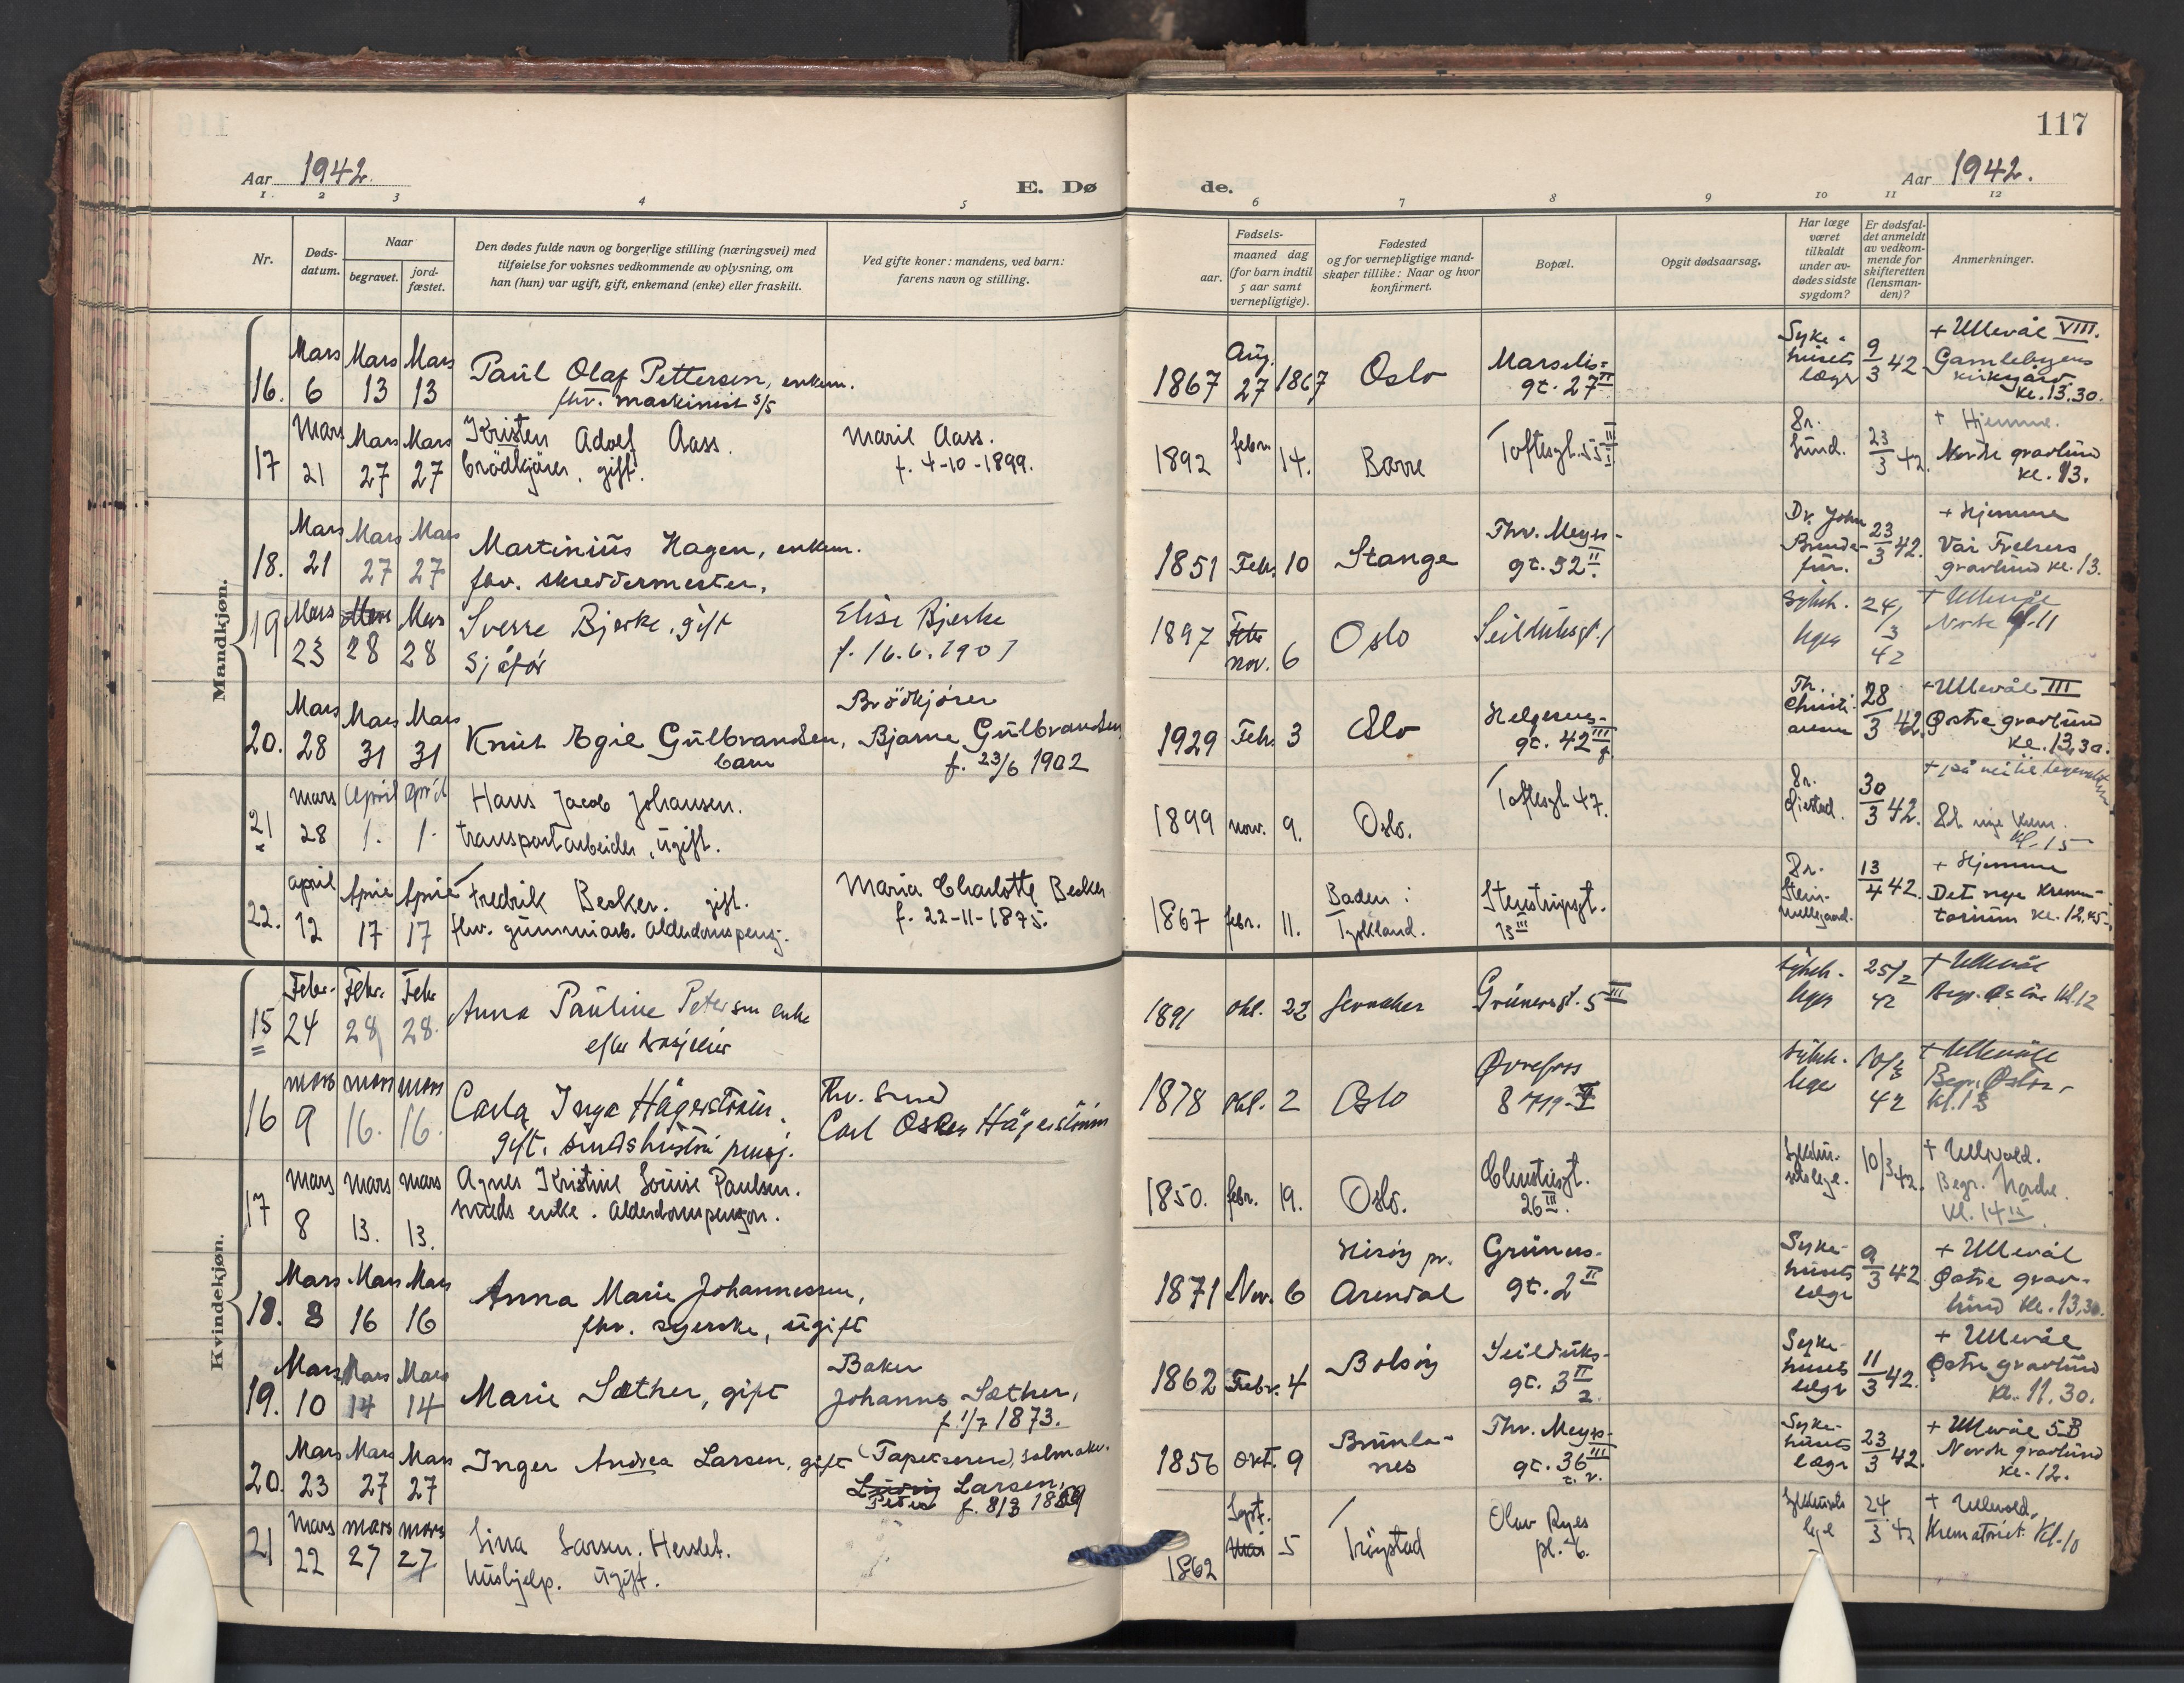 117
Aar 1942.
E. Dø
de.
Aar 1942.
1. 2 3 4 5 6 7 8 9 10 11 12
Nr.
Døds-
datum.
Naar
begravet.
jord-
fæstet.
Den dødes fulde navn og borgerlige stilling (næringsvei) med
tilføielse for voksnes vedkommende av oplysning, om
han (hun) var ugift, gift, enkemand (enke) eller fraskilt.
Ved gifte koner: mandens, ved barn:
farens navn og stilling.
Fødsels-
aar.
maaned dag
(for barn indtil
5 aar samt
vernepligtige).
Fødested
og for vernepligtige mand-
skaper tillike: Naar og hvor
konfirmert.
Bopæl.
Opgit dødsaarsag.
Har læge
været
tilkaldt
under av-
dødes sidste
sygdom?
Er dødsfal-
det anmeldt
av vedkom-
mende for
skifteretten
(lensman-
den)?
Anmerkninger.
Mandkjøn.
16. Mars 6 Mars 13 Mars 13
Paul Olaf Pettersen, enkem.
fhv. maskinist s/s
1867 Aug. 27 1867 Oslo
Marselis-
gt. 27 II
Syke-
husets
læge
9/3 42
+ Ullevål VIII.
Gamlebyens
kirkegård.
kl. 13.30.
17 Mars 21 Mars 27 Mars 27
Kristen Adolf Aass.
brödkjörer. gift.
Maril Aass.
f. 4-10-1899.
1892 febr. 14. Borre
Toftesgt. 55 III
Dr.
Lund.
23/3 42.
+ Hjemme.
Nordre gravlund
kl. 13.
18. Mars 21 Mars 27 Mars 27
Martinius Hagen, enkem.
fhv. skreddermester.
1851 Febr. 10 Stange
Thv. Meyers-
gt. 52 II.
Dr. John
23/3 42.
+ Hjemme
Vår Frelsers
gravlund kl. 13.
19 Mars 23 Mars 28 Mars 28
Sverre Bjerke, gift
sjåför
Elise Bjerke
f. 16.6.1907
1897 Febr nov. 6 Oslo
Seilduksgt. 1
Sykeh.
lege
24/3 42
+ Ullevål
Nordre kl. 11
20. Mars 28 Mars 31 Mars 31
Knut Egil Gulbrandsen,
barn
Brödkjörer
Bjarne Gulbrandsen
f. 23/6 1902
1929 Febr. 3 Oslo
Helgesens-
gt. 42 III
Th.
Christi-
ansen
28/3 42.
+ Ullevål III
Østre gravlund
kl. 13,30.
21 mars 28 april 1. april 1.
Hans Jacob Johansen.
transportarbeider, ugift.
1899 nov. 9. Oslo.
Toftesgt. 47.
Dr.
30/3 42.
+ på vei til legevakten
Det nye Krem.
kl. 15
22. april 12 April 17 April 17
Fredrik Becker. gift.
fhv. gummiarb. Alderdomspensj.
Maria Charlotte Becker
f. 22-11-1875.
1867 febr. 11.
Baden i
Tyskland.
Stenstrupsgt.
13 III
Dr.
13/4 42.
+ Hjemme
Det nye Krema-
torium kl. 12.45
Kvindekjøn.
15 Febr. 24 Febr. 28 Febr 28.
Anna Pauline Petersen enke
efter
1891 okt. 22 Jevnaker
Grünersgt. 5 III
Sykeh.
lege
25/2 42
+ Ullevål
Begr. Østre kl. 12
16 mars 9 mars 16. mars 16.
Carla Inga Hägerström.
gift.
Fhv. Smed
Carl Oskar Hägerström
1878 okt. 2 Oslo
Øvrefoss
8
Sykeh.
lege
10/3 42
+ Ullevål
Begr. Østre
kl. 13
17 mars 8 mars 13. mars 13.
Agnes Kristine Louise Paulsen.
smeds enke. Alderdomspensjon.
1850. febr. 19. Oslo.
Christiesgt.
26 III.
Sykehu-
setslege.
10/3 42.
+ Ullevold.
Begr. Nordre
kl. 14
18. Mars 8 Mars 16 Mars 16
Anna Marie Johannessen,
fhv. syerske, ugift
1871 Nov. 6
Hisöy pr.
Arendal
Grüners-
gt. 2 II
Syke-
husets
læge
9/3 42
+ Ullevål
Østre grav-
lund kl. 13,30.
19. Mars 10 Mars 14 Mars 14
Marie Sæther, gift
Baker
Johannes Sæther,
f. 1/7 1873.
1862 Febr. 4 Bolsöy
Seilduks-
gt. 3 II
2.
Syke-
husets
læge
11/3 42.
+ Ullevål
Østre gravlund
kl. 11.30.
20. Mars 23 Mars 27 Mars 27
Inger Andrea Larsen, gift
(Tapetserer), salmakr.
Ludvig Larsen,
Peter f. 8/3 1869
1856 Okt. 9
Brunla-
nes
Thv. Meyers-
gt. 36 III
t. v.
Syke-
husets
læge
23/3 42.
+ Ullevål 5 B
Nordre gravlund
kl. 12.
21 mars 22 mars 27 mars 27
Lina Larsen. Herslet.
Hushjelp. Ugift.
1862 Sept. Mai 5 Tröystad
Olav Ryes
pl. 6.
Sykehusets
lege
24/3 42
+ Ullevold.
Krematoriet. Kl. 10